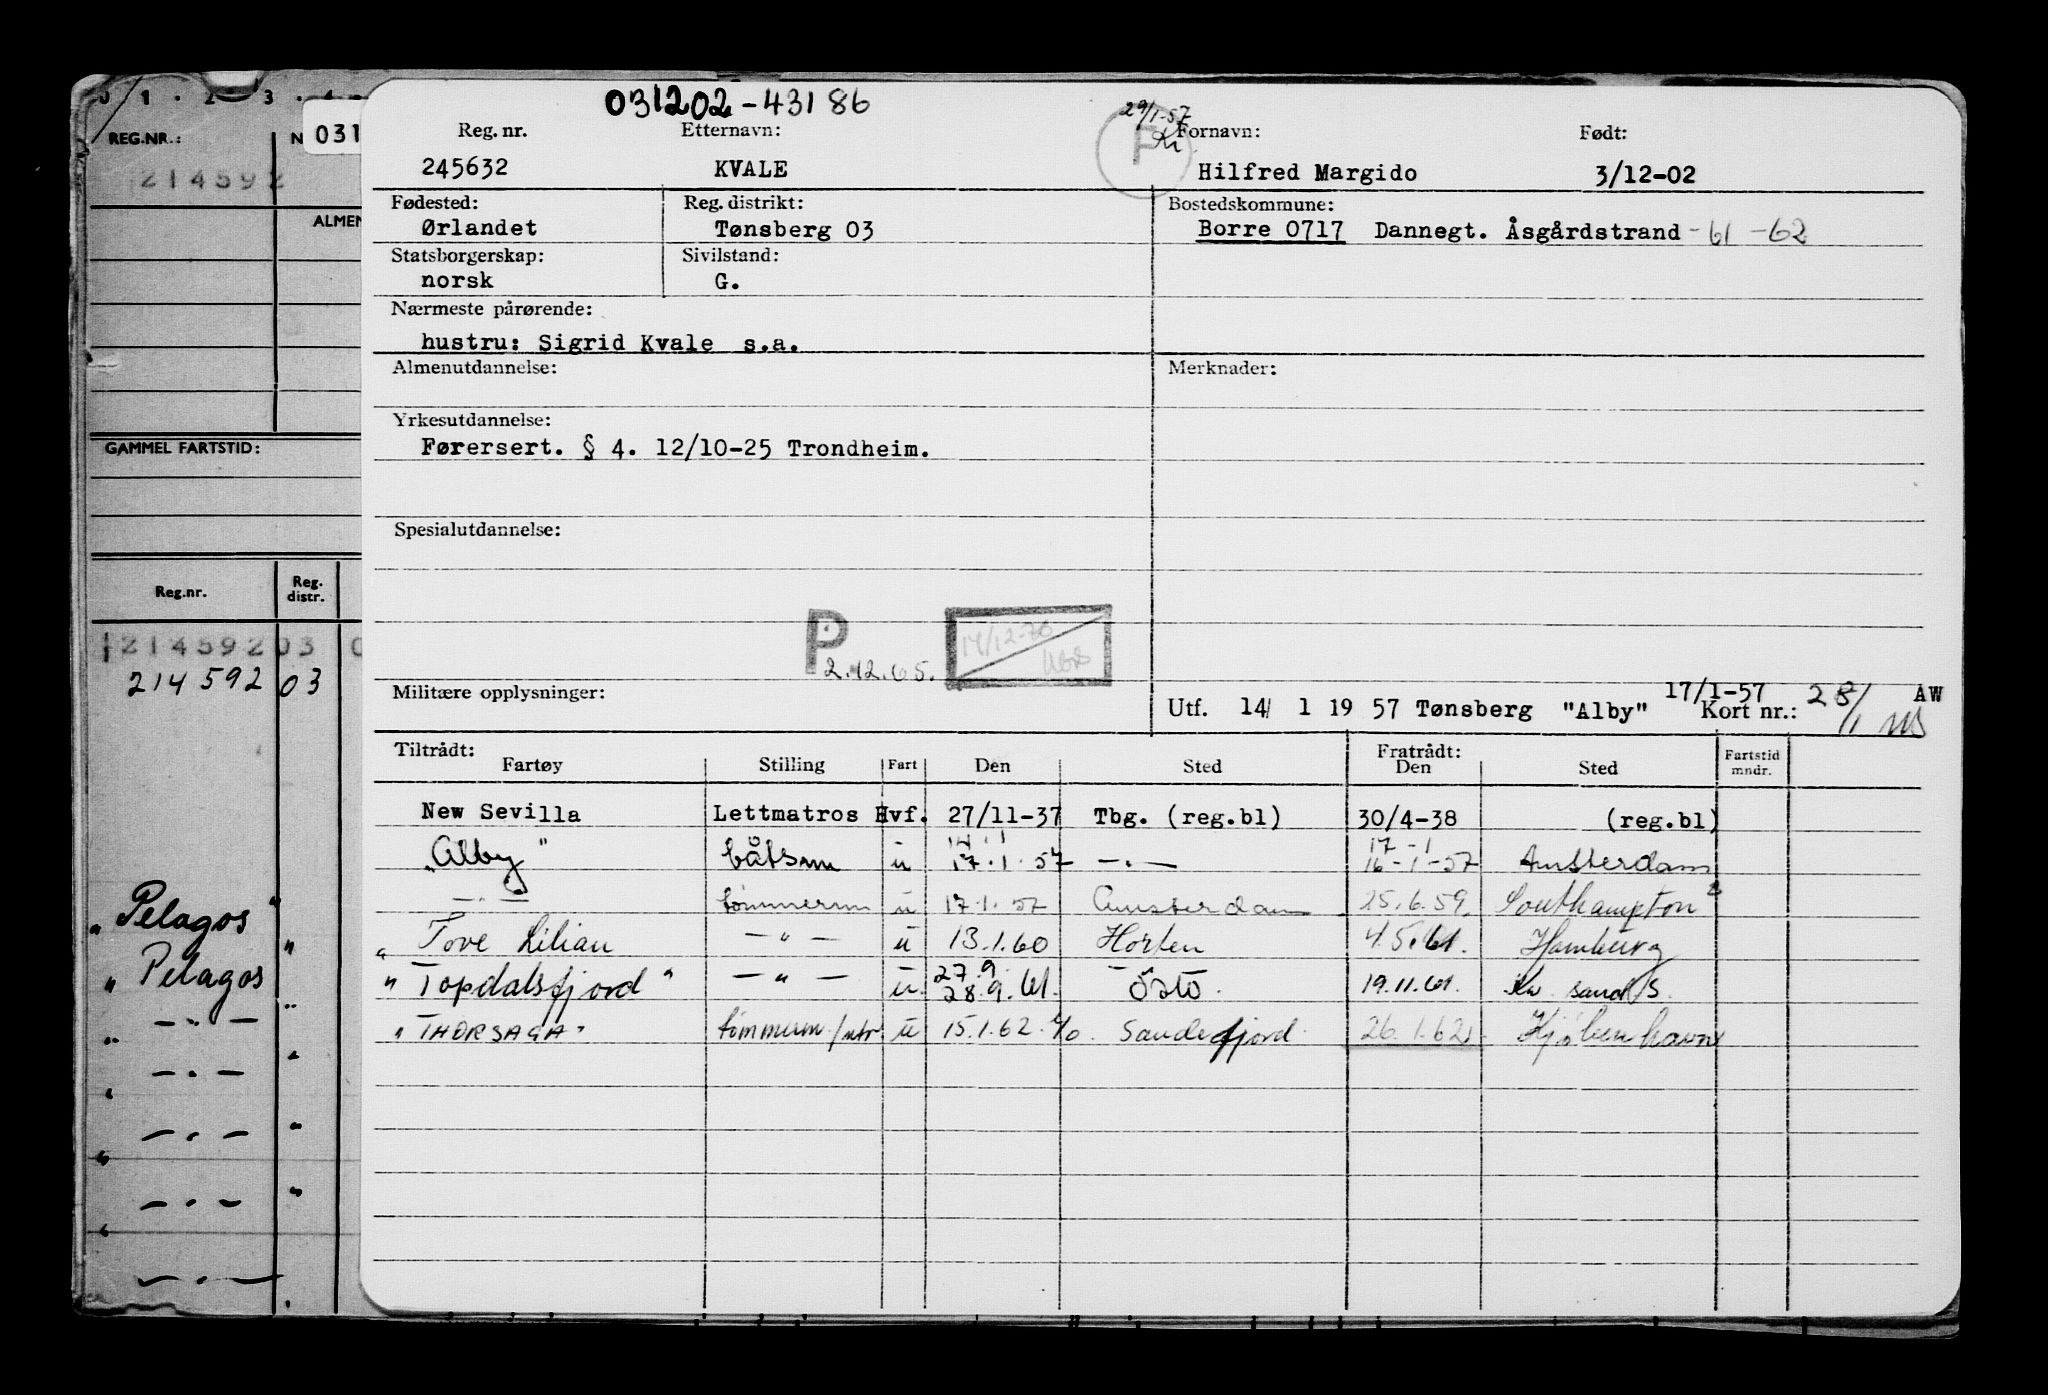 0 1 . 2 . 3 . 4
REG.NR.:
N
031
214592
ALMEN
GAMMEL FARTSTID:
Reg.nr.
Reg. distr.
121459203 0
214592 03
"Pelagos"
" Pelagos "
" — . — "
" — . — "
" — . — "
" — . — "
" — . —
031202-43186
29/1-57
Kr.
F
Reg. nr. Etternavn: Fornavn: Født:
245632 KVALE Hilfred Margido 3/12-02
Fødested: Reg. distrikt: Bostedskommune:
Ørlandet Tønsberg 03 Borre 0717 Dannegt. Åsgårdstrand -61 -62
Statsborgerskap: Sivilstand:
norsk G.
Nærmeste pårørende:
hustru: Sigrid Kvale s.a.
Almenutdannelse: Merknader:
Yrkesutdannelse:
Førersert. § 4. 12/10-25 Trondheim.
Spesialutdannelse:
P 2.12.65.
14/12-70
Militære opplysninger:
17/1-57 28/1 AW
Utf. 14/ 1 19 57 Tønsberg "Alby" Kort nr.:
Tiltrådt: Fratrådt:
Fartøy Stilling Fart Den Sted Den Sted Fartstid mndr.
New Sevilla Lettmatros Hvf. 27/11-37 Tbg. (reg.bl) 30/4-38 (reg.bl)
14.1 17-1
"Alby" båtsm u 17.1.57 — . — 16-1-57 Amsterdam
— . — tømmerm u 17.1.57 Amsterdam 25.6.59. Southampton
" Tove Lilian — " — u 13.1.60 Horten 4.5.61. Hamburg
27.9.
" Topdalsfjord " — " — u. 28.9.61. Oslo. 19.11.61. Kr. sand S.
" THORSAGA " tømmerm/mtr u 15.1.62. Sandefjord. 26.1.62. Kjøbenhavn